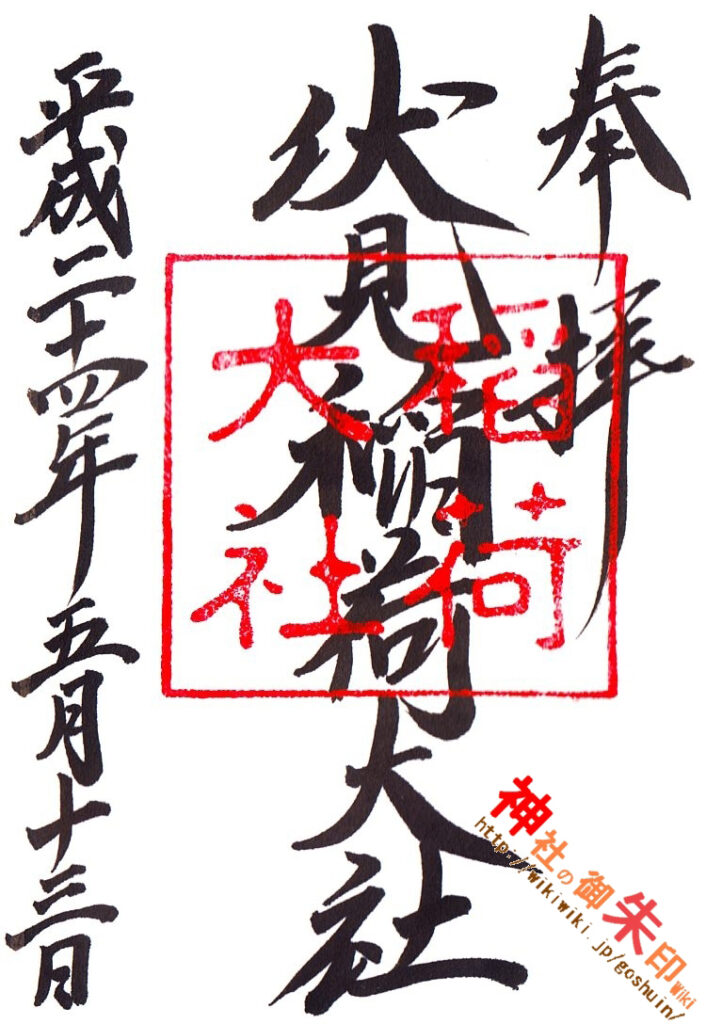 奉拝
伏見稲荷大社
稲荷
大社
平成二十四年 五月十三日
神社の御朱印Wiki
http://wikiwiki.jp/goshuin/